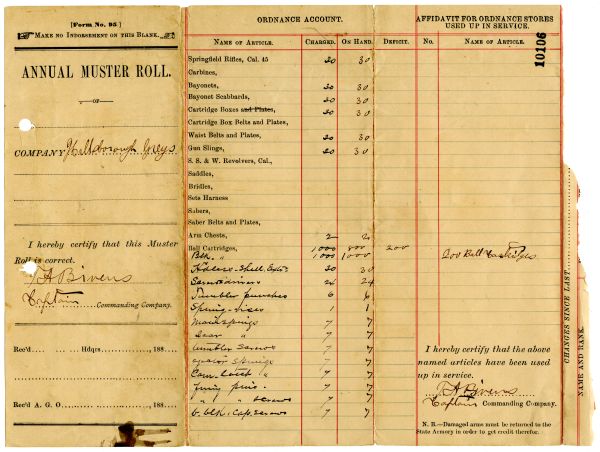 [Form No. 95]
Make no Indorsement on this Blank.
ANNUAL MUSTER ROLL.
—OF—
COMPANY Hillsborough Greys
I hereby certify that this Muster
Roll is correct.
T A Bivens
Captain Commanding Company.
Rec'd Hdqrs. 188
Rec'd A. G. O. 188
ORDNANCE ACCOUNT.
Name of Article. Charged. On Hand. Deficit.
Springfield Rifles, Cal. 45 30 30
Carbines,
Bayonets, 30 30
Bayonet Scabbards, 30 30
Cartridge Boxes and Plates, 30 30
Cartridge Box Belts and Plates,
Waist Belts and Plates, 30 30
Gun Slings, 30 30
S. S. & W. Revolvers, Cal.,
Saddles,
Bridles,
Sets Harness
Sabers,
Saber Belts and Plates,
Arm Chests, 2 2
Ball Cartridges, 1000 800 200
Blk. " 1000 1000
Shell Extr 30 30
Screwdrivers 24 24
Tumbler punches 6 6
Spring-vises 1 1
Mainsprings 7 7
Sear " 7 7
Tumbler Screws 7 7
Springs 7 7
" 7 7
Firing pins 7 7
" " screws 7 7
B. blk. Cap. Screws 7 7
AFFIDAVIT FOR ORDNANCE STORES
USED UP IN SERVICE.
No. Name of Article.
10106
200 Ball Cartridges
I hereby certify that the above
named articles have been used
up in service.
T A Bivens
Captain Commanding Company.
N. B.—Damaged arms must be returned to the
State Armory in order to get credit therefor.
CHANGES SINCE LAST.
NAME AND RANK.